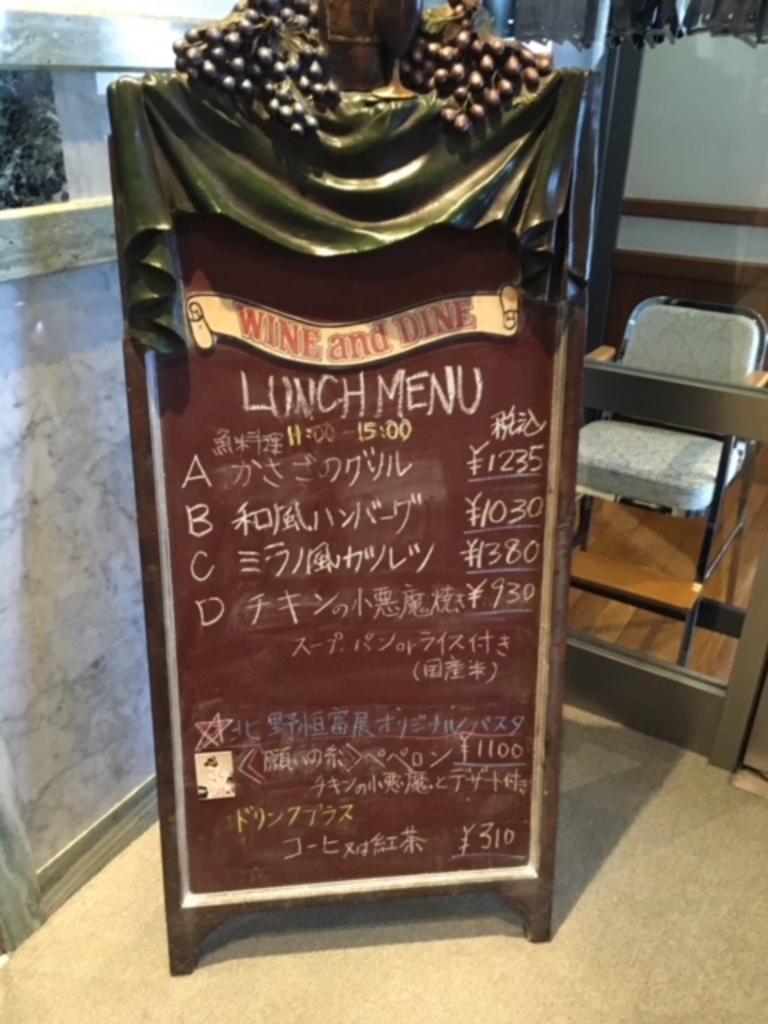 WINE and DINE
LUNCH MENU
魚料理 11:00-15:00 税込
A かさごのグリル ¥1235
B 和風ハンバーグ ¥1030
C ミラノ風カツレツ ¥1380
D チキンの小悪魔焼き ¥930
スープ. パンorライス付き
(国産米)
☆北野恒富展オリジナルパスタ
《願いの糸》ペペロン ¥1100
チキンの小悪魔とデザート付き
ドリンクプラス
コーヒ又は紅茶 ¥310